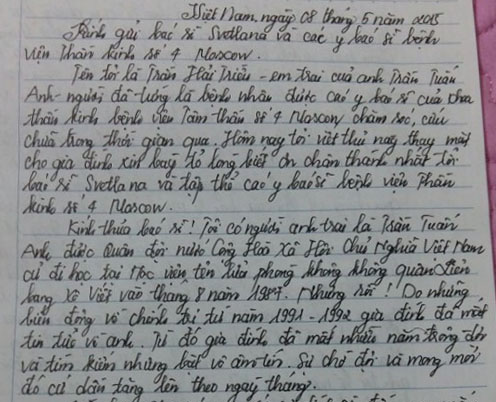 Việt Nam, ngày 08 tháng 5 năm 2015
Kính gửi bác sĩ Svetlana và các y bác sĩ bệnh
viện thần kinh số 4 Moscow.
Tên tôi là Trần Hải Triều - em trai của anh Trần Tuấn
Anh - người đã từng là bệnh nhân được các y bác sĩ của khoa
thần kinh bệnh viện tâm thần số 4 Moscow chăm sóc, cứu
chữa trong thời gian qua. Hôm nay tôi viết thư này thay mặt
cho gia đình xin bày tỏ lòng biết ơn chân thành nhất tới
bác sĩ Svetlana và tập thể các y bác sĩ bệnh viện thần
kinh số 4 Moscow.
Kính thưa bác sĩ! Tôi có người anh trai là Trần Tuấn
Anh, được Quân đội nước Cộng Hoà Xã Hội Chủ Nghĩa Việt Nam
cử đi học tại Học viện tên lửa phòng không không quân Liên
bang Xô Viết vào tháng 8 năm 1987. Nhưng rồi! Do những
biến động về chính trị từ năm 1991 - 1992 gia đình đã mất
tin tức về anh. Từ đó gia đình đã mất nhiều năm trong đợi
và tìm kiếm nhưng bặt vô âm tín. Sự chờ đợi và mong mỏi
đó cứ dần tăng lên theo ngày tháng.